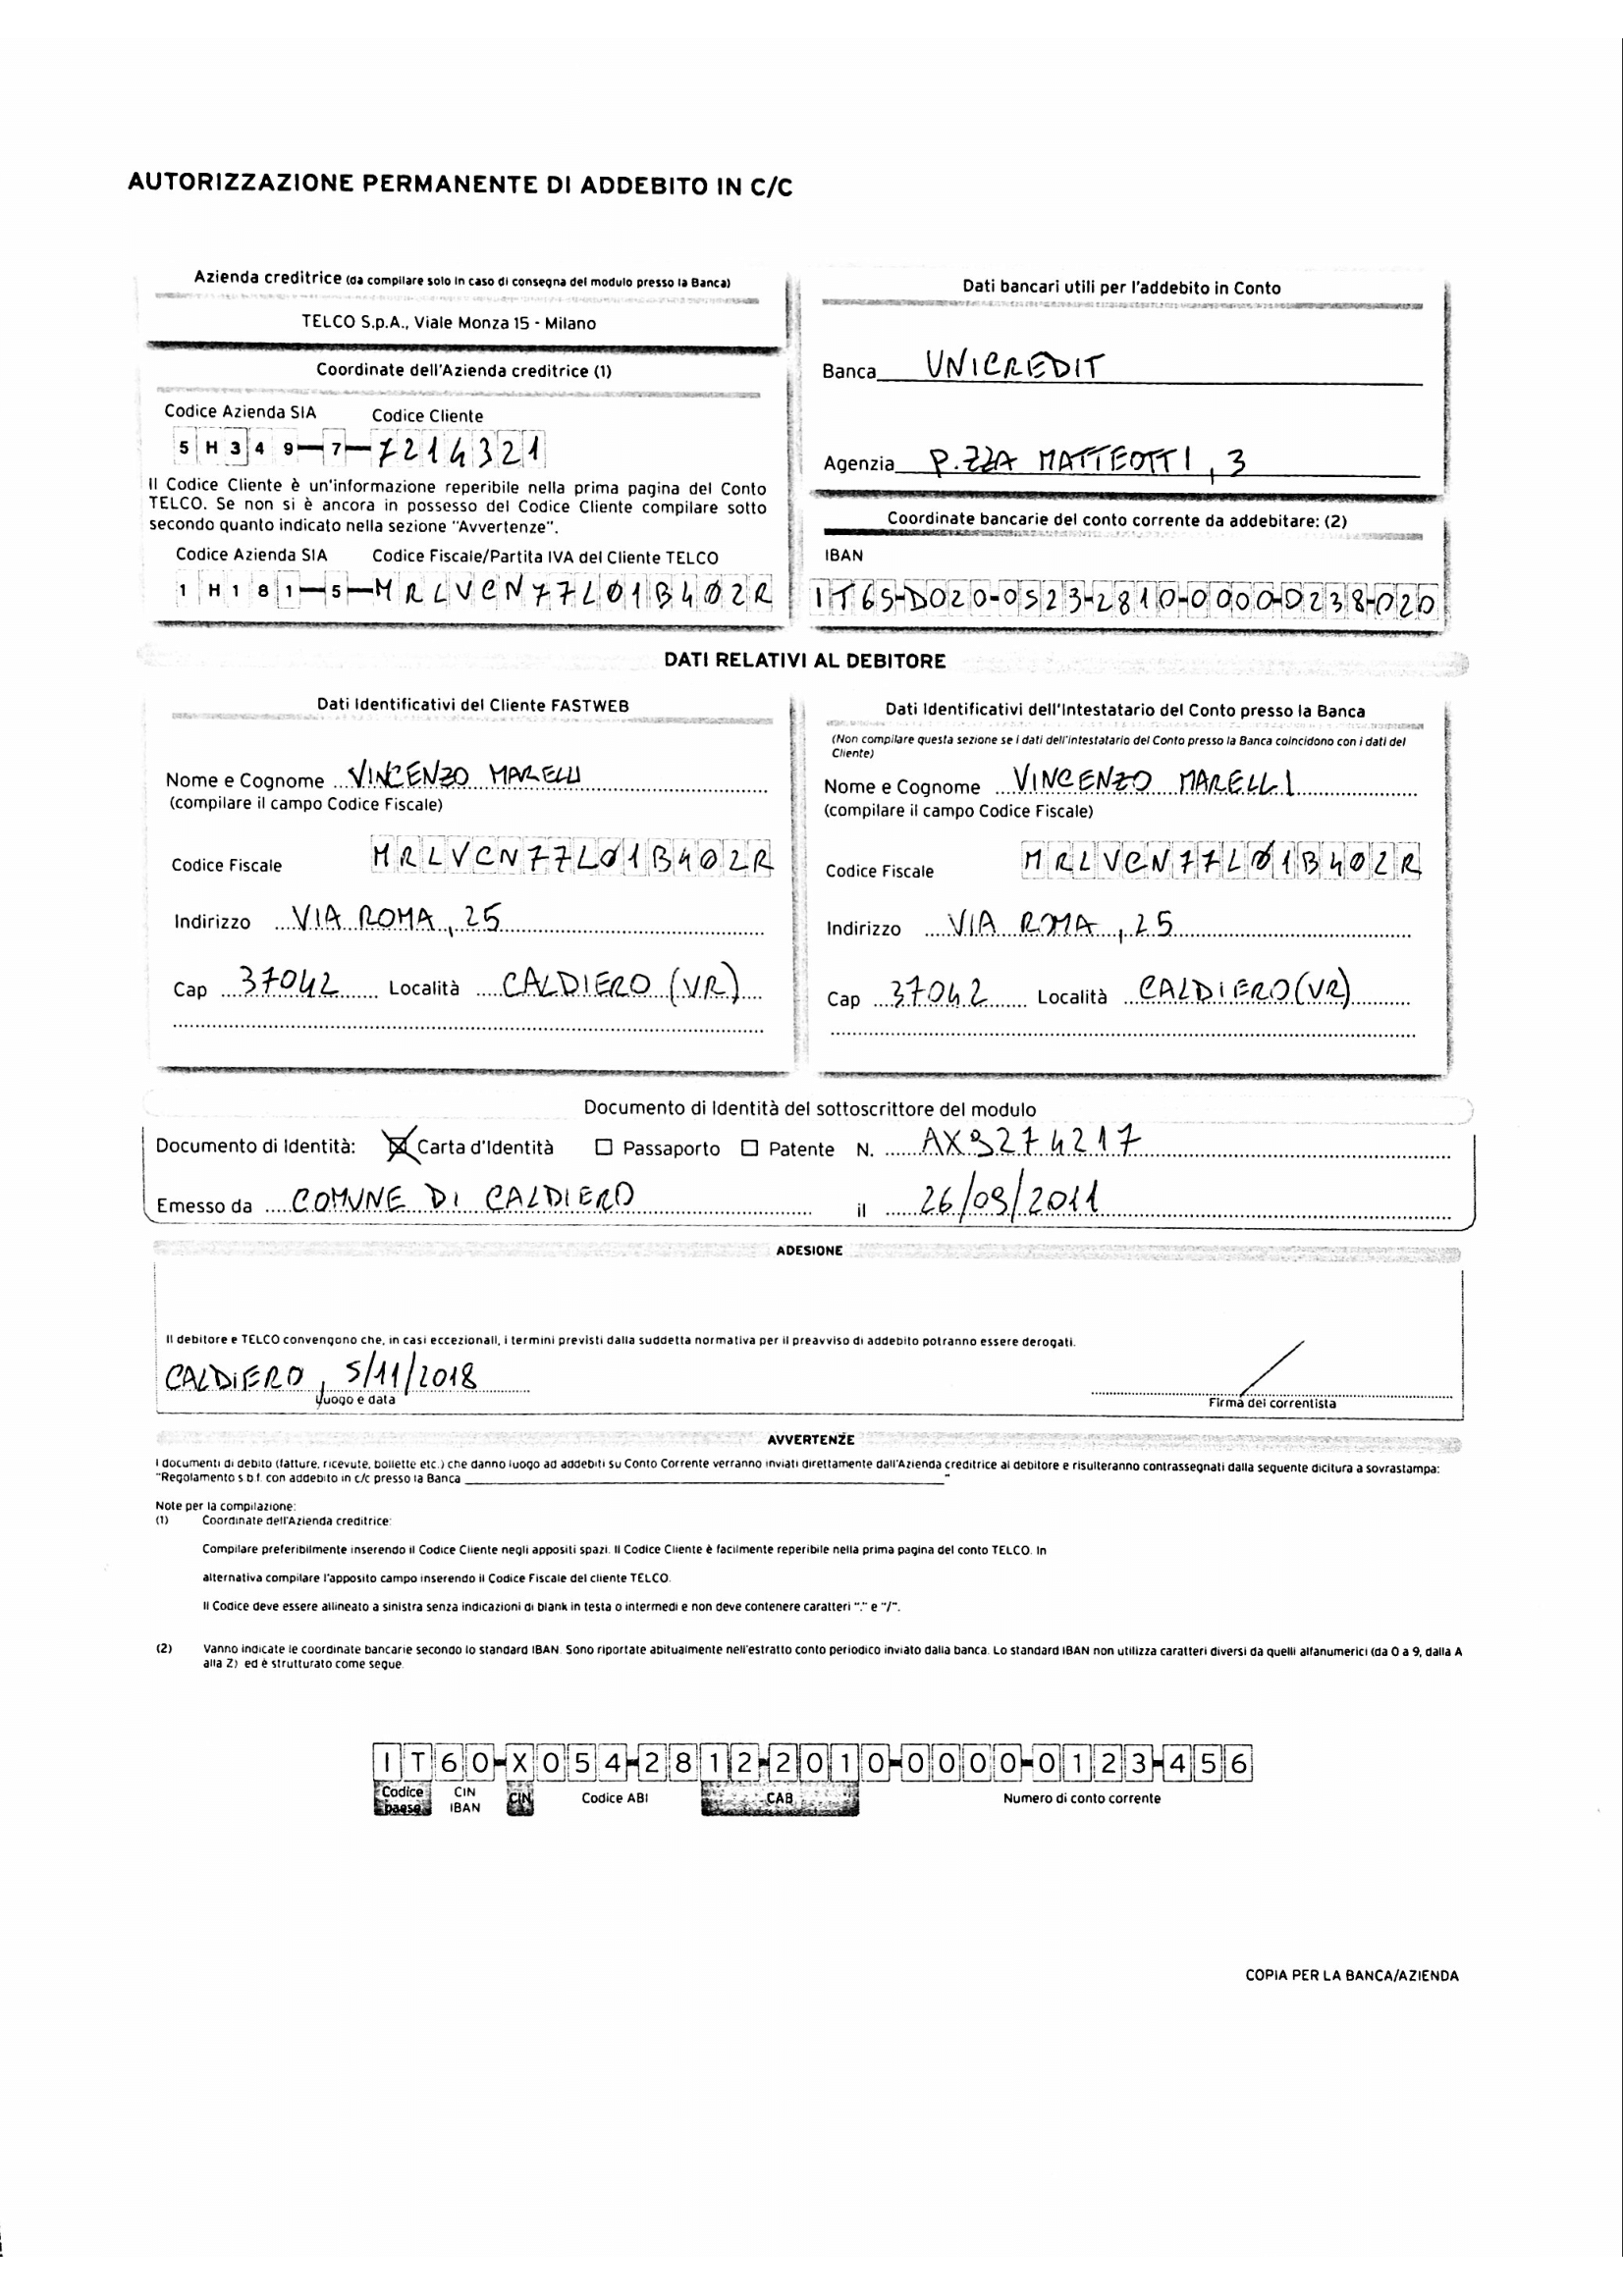 AUTORIZZAZIONE PERMANENTE DI ADDEBITO IN C/C
Azienda creditrice (da compilare solo in caso di consegna del modulo presso la Banca)
TELCO S.p.A., Viale Monza 15 - Milano
Coordinate dell'Azienda creditrice (1)
Codice Azienda SIA Codice Cliente
5 H 3 4 9 - 7 - 7214321
Il Codice Cliente è un'informazione reperibile nella prima pagina del Conto
TELCO. Se non si è ancora in possesso del Codice Cliente compilare sotto
secondo quanto indicato nella sezione "Avvertenze".
Codice Azienda SIA Codice Fiscale/Partita IVA del Cliente TELCO
1 H 1 8 1 - 5 - MRLVCN77L01B402R
Dati bancari utili per l'addebito in Conto
Banca UNICREDIT
Agenzia P.ZZA MATTEOTTI, 3
Coordinate bancarie del conto corrente da addebitare: (2)
IBAN
IT65-D020-0523-2810-0000-0238-020
DATI RELATIVI AL DEBITORE
Dati Identificativi del Cliente FASTWEB
Nome e Cognome VINCENZO MARELLI
(compilare il campo Codice Fiscale)
Codice Fiscale MRLVCN77L01B402R
Indirizzo VIA ROMA, 25
Cap 37042 Località CALDIERO (VR)
Dati Identificativi dell'Intestatario del Conto presso la Banca
(Non compilare questa sezione se i dati dell'intestatario del Conto presso la Banca coincidono con i dati del
Cliente)
Nome e Cognome VINCENZO MARELLI
(compilare il campo Codice Fiscale)
Codice Fiscale MRLVCN77L01B402R
Indirizzo VIA ROMA, 25
Cap 37042 Località CALDIERO (VR)
Documento di Identità del sottoscrittore del modulo
Documento di Identità: Carta d'Identità Passaporto Patente N. AX9274217
Emesso da COMUNE DI CALDIERO il 26/09/2011
ADESIONE
Il debitore e TELCO convengono che, in casi eccezionali, i termini previsti dalla suddetta normativa per il preavviso di addebito potranno essere derogati.
CALDIERO, 5/11/2018
Luogo e data
Firma del correntista
AVVERTENZE
I documenti di debito (fatture, ricevute, bollette etc.) che danno luogo ad addebiti su Conto Corrente verranno inviati direttamente dall'Azienda creditrice al debitore e risulteranno contrassegnati dalla seguente dicitura a sovrastampa:
"Regolamento s.b.f. con addebito in c/c presso la Banca "
Note per la compilazione:
(1) Coordinate dell'Azienda creditrice:
Compilare preferibilmente inserendo il Codice Cliente negli appositi spazi. Il Codice Cliente è facilmente reperibile nella prima pagina del conto TELCO. In
alternativa compilare l'apposito campo inserendo il Codice Fiscale del cliente TELCO.
Il Codice deve essere allineato a sinistra senza indicazioni di blank in testa o intermedi e non deve contenere caratteri "." e "/".
(2) Vanno indicate le coordinate bancarie secondo lo standard IBAN. Sono riportate abitualmente nell'estratto conto periodico inviato dalla banca. Lo standard IBAN non utilizza caratteri diversi da quelli alfanumerici (da 0 a 9, dalla A
alla Z) ed è strutturato come segue.
IT60-X054-2812-2010-0000-0123-456
Codice paese CIN IBAN CIN Codice ABI CAB Numero di conto corrente
COPIA PER LA BANCA/AZIENDA